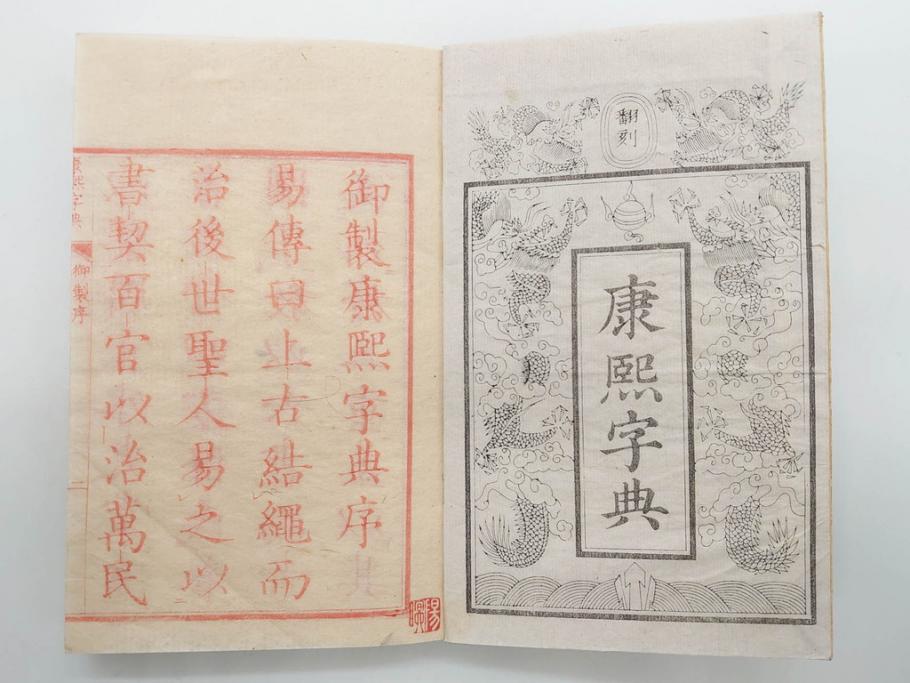 翻刻
康熙字典
御製康熙字典序
易傳曰上古結繩而
治後世聖人易之以
書契百官以治萬民
康熙字典
御製序